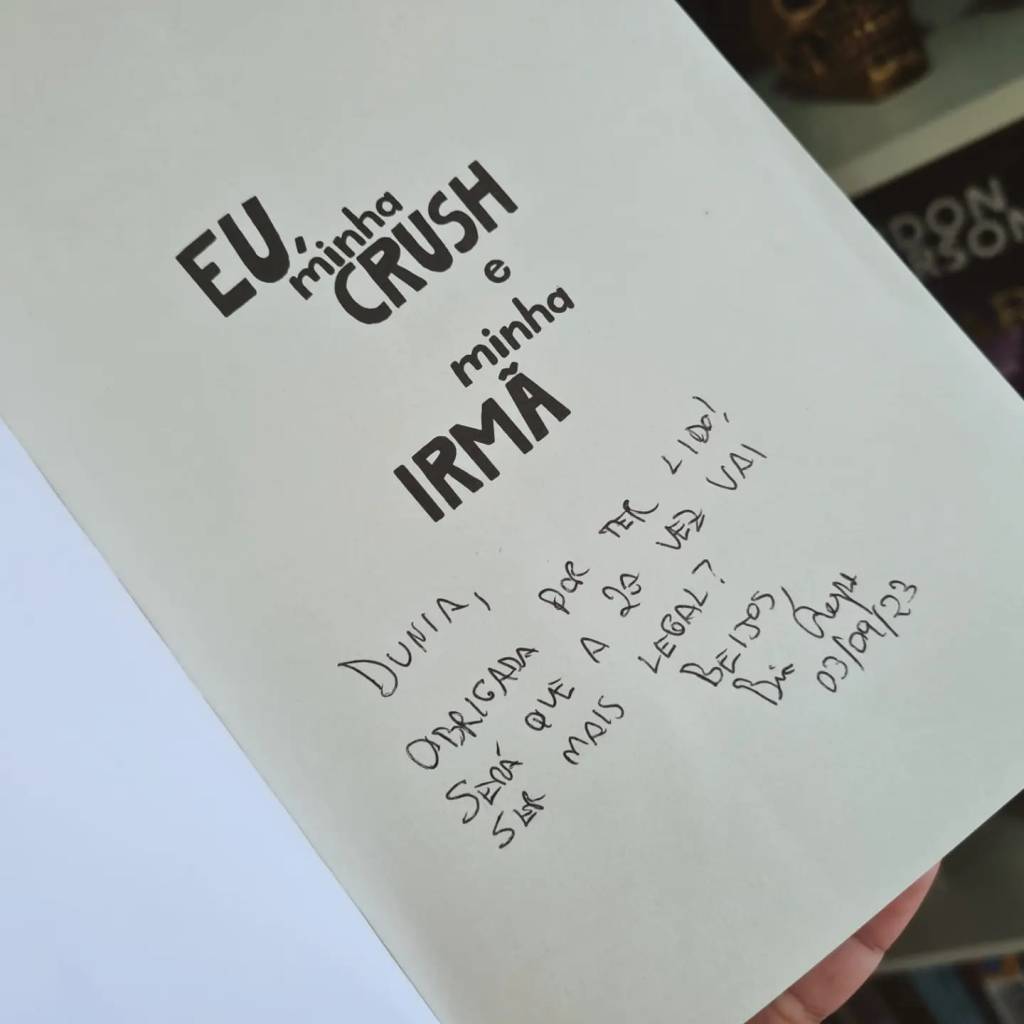 EU,
minha
CRUSH
e
minha
IRMÃ
DUNIA,
OBRIGADA POR TER LIDO!
SERÁ QUE A 2ª VEZ VAI
SER MAIS LEGAL?
BEIJOS,
Bia
03/09/23
DON
RSON
R